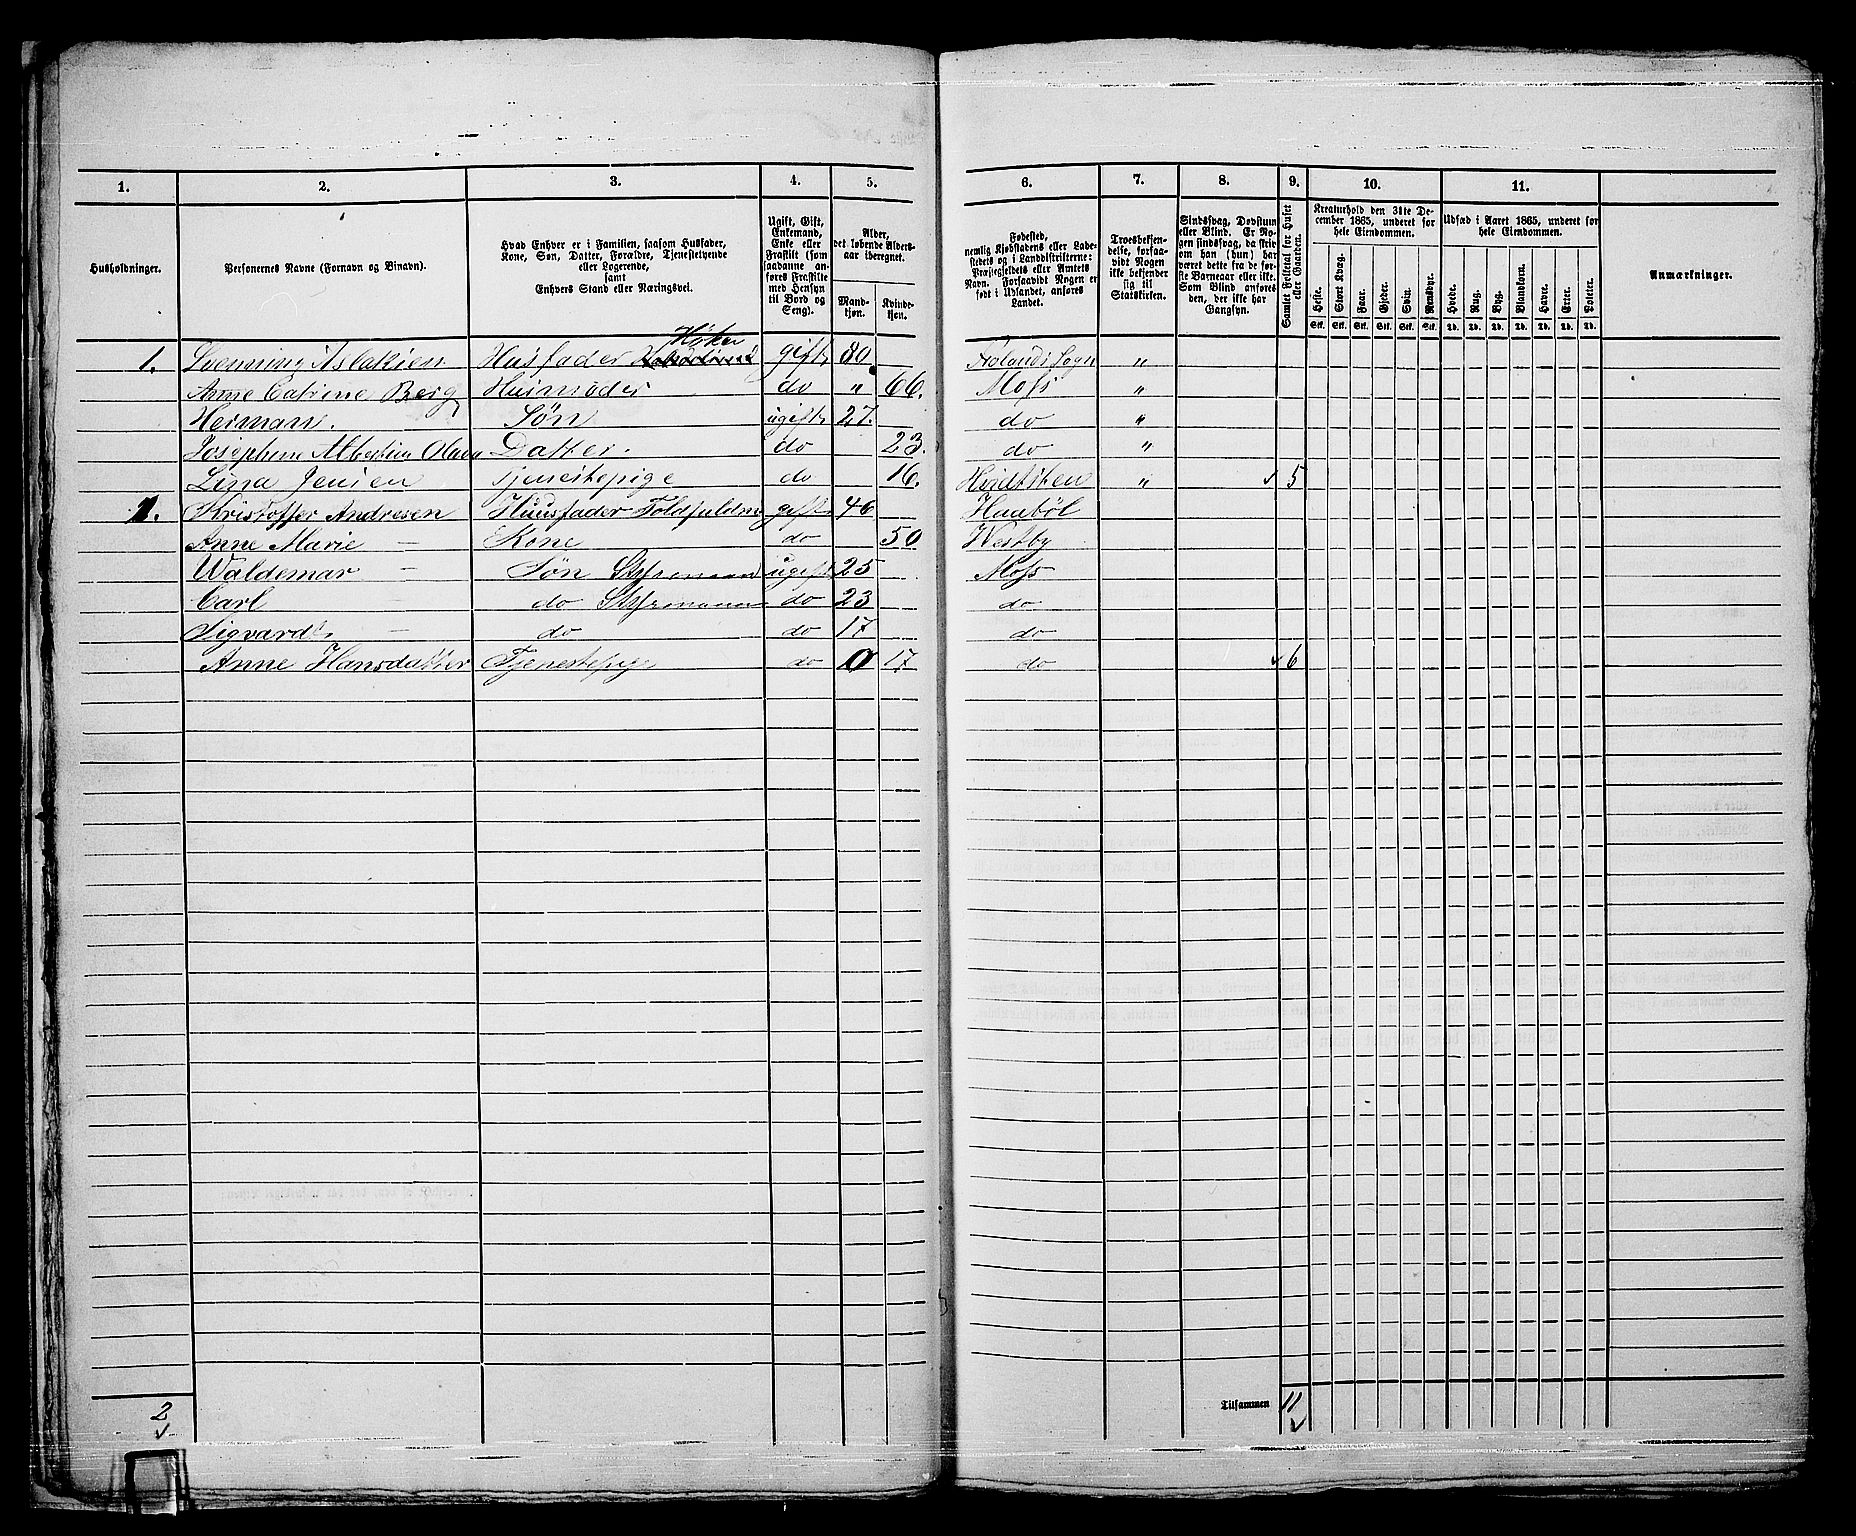 1. 2. 3. 4. 5. 6. 7. 8. 9. 10. 11.
Husholdninger.
Personernes Navne (Fornavn og Binavn).
Hvad Enhver er i Familien, saasom Husfader,
Kone, Søn, Datter, Forældre, Tjenestetyende
eller Logerende,
samt
Enhvers Stand eller Næringsvei.
Ugift, Gift,
Enkemand,
Enke eller
Fraskilt (som
saadanne an-
føres Fraskilte
med Hensyn
til Bord og
Seng).
Alder,
det løbende Alders-
aar iberegnet.
Mand-
kjøn.
Kvinde-
kjøn.
Fødested,
nemlig Kjøbstadens eller Lade-
stedets og i Landdistrikterne:
Præstegjeldets eller Amtets
Navn. Forsaavidt Nogen er
født i Udlandet, anføres
Landet.
Troesbekjen-
delse, forsaa-
vidt Nogen
ikke bekjender
sig til
Statskirken.
Sindssvag, Døvstum
eller Blind. Er No-
gen sindssvag, da skrives
om han (hun) har
været dette fra de før-
ste Barneaar eller ikke.
Som Blind anføres
den, der ikke har
Gangsyn.
Samlet Folketal for Huset
eller Gaarden.
Kreaturhold den 31te De-
cember 1865, underet for
hele Eiendommen.
Heste. Stort Kvæg. Faar. Gjeder. Svin. Rensdyr.
Stk. Stk. Stk. Stk. Stk. Stk.
Udsæd i Aaret 1865, underet for
hele Eiendommen.
Hvede. Rug. Byg. Blandkorn. Havre. Erter. Poteter.
Td. Td. Td. Td. Td. Td. Td.
Anmærkninger.
Høker
1. Svenning Aslaksen Husfader gift 80 Sogn "
Anne Catrine Berg Husmoder do " 66. Moss "
Herman. Søn ugift 27. do "
Josephine Albertine Olsen Datter. do 23. do "
Lina Jensen tjenestepige do 16. " 5
1. Kristoffer Andresen Huusfader Toldfuldm gift 46 Haabøl
Anne Marie — Kone do 50 Westby
Waldemar — Søn Styrmand ugift 25 Moss
Carl do Styrmann do 23 do
Sigvard — do do 17 do
Anne Hansdatter Tjenestepige do 0 17 do 6
2
Tilsammen 11